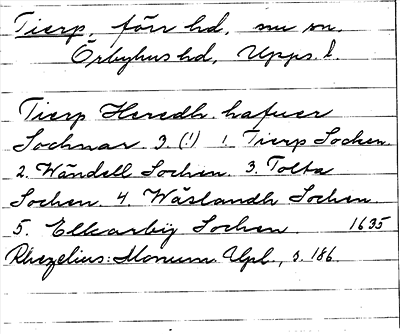 Tierp, förr hd, nu sn.
Örbyhus hd, Upps. l.
Tierp Heredh hafuer
Sochnar 9. (!) 1. Tierp Sochen
2. Wändell Sochen. 3. Tolta
Sochen. 4. Wäslandh Sochen.
5. Elkarbÿ Sochen. 1635
Rhezelius: Monum. Upl., s. 186.